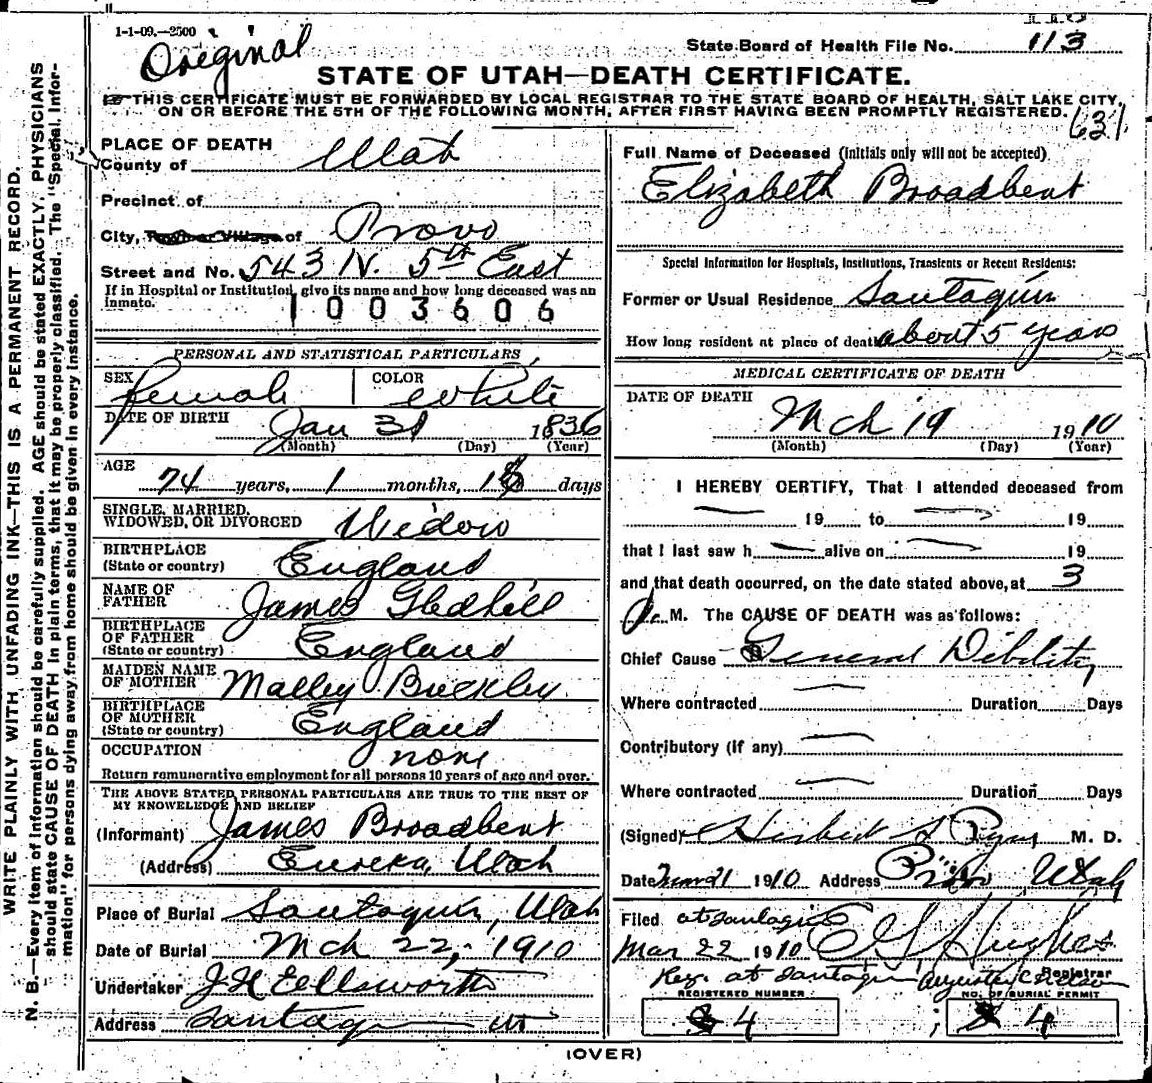 1-1-09.—2500
Original
State Board of Health File No. 113
STATE OF UTAH—DEATH CERTIFICATE.
THIS CERTIFICATE MUST BE FORWARDED BY LOCAL REGISTRAR TO THE STATE BOARD OF HEALTH, SALT LAKE CITY,
ON OR BEFORE THE 5TH OF THE FOLLOWING MONTH, AFTER FIRST HAVING BEEN PROMPTLY REGISTERED.
WRITE PLAINLY WITH UNFADING INK—THIS IS A PERMANENT RECORD.
N. B.—Every item of information should be carefully supplied. AGE should be stated EXACTLY. PHYSICIANS
should state CAUSE OF DEATH in plain terms, that it may be properly classified. The "Special Infor-
mation" for persons dying away from home should be given in every instance.
PLACE OF DEATH
County of Utah
Precinct of
City, Town or Village of Provo
Street and No. 543 N. 5th East
If in Hospital or Institution, give its name and how long deceased was an
inmate.
1003606
PERSONAL AND STATISTICAL PARTICULARS
SEX female COLOR white
DATE OF BIRTH Jan 31 1836
(Month) (Day) (Year)
AGE 74 years, 1 months, days
SINGLE, MARRIED,
WIDOWED, OR DIVORCED Widow
BIRTHPLACE
(State or country) England
NAME OF
FATHER James Gledhill
BIRTHPLACE
OF FATHER
(State or country) England
MAIDEN NAME
OF MOTHER Malley Buckley
BIRTHPLACE
OF MOTHER
(State or country) England
OCCUPATION none
Return remunerative employment for all persons 10 years of age and over.
THE ABOVE STATED PERSONAL PARTICULARS ARE TRUE TO THE BEST OF
MY KNOWELEDGE AND BELIEF
(Informant) James Broadbent
(Address) Eureka, Utah
Place of Burial Santaquin, Utah
Date of Burial Mch 22, 1910
Undertaker J H Eellsworth
Address Santaquin Ut
Full Name of Deceased (Initials only will not be accepted)
Elizabeth Broadbent
Special Information for Hospitals, Institutions, Transients or Recent Residents:
Former or Usual Residence Santaquin
How long resident at place of death about 5 years
MEDICAL CERTIFICATE OF DEATH
DATE OF DEATH
Mch 19 1910
(Month) (Day) (Year)
I HEREBY CERTIFY, That I attended deceased from
— 19 to — 19
that I last saw h — alive on — 19
and that death occurred, on the date stated above, at 3
M. The CAUSE OF DEATH was as follows:
Chief Cause General Dibility
Where contracted — Duration Days
Contributory (If any) —
Where contracted — Duration Days
(Signed) Herbert S Pyne M. D.
Date Mar 21 1910 Address Provo, Utah
Filed at Santaquin
Mar 22 1910 E G Hughes
Reg. at Santaquin Registrar
REGISTERED NUMBER 4
NO. OF BURIAL PERMIT 4
(OVER)